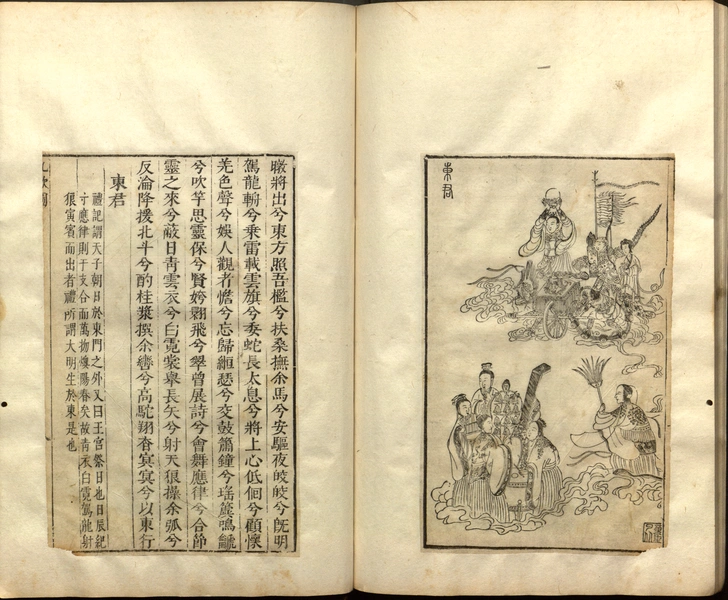 東君
暾將出兮東方照吾檻兮扶桑撫余馬兮安驅夜皎皎兮旣明
駕龍輈兮乘雷載雲旗兮委蛇長太息兮將上心低佪兮顧懷
羌色聲兮娛人觀者憺兮忘歸緪瑟兮交鼓簫鐘兮瑤簴鳴䶵
兮吹竽思靈保兮賢姱翾飛兮翠曾展詩兮會舞應律兮合節
靈之來兮蔽日青雲衣兮白霓裳舉長矢兮射天狼操余弧兮
反淪降援北斗兮酌桂漿撰余轡兮高駝翔杳冥冥兮以東行
東君
禮記謂天子朝日於東門之外又曰王宮祭日也日辰紀
寸應律則干支合而萬物煖陽春矣故青衣白霓駕龍射
狼寅賓而出者禮所謂大明生於東是也